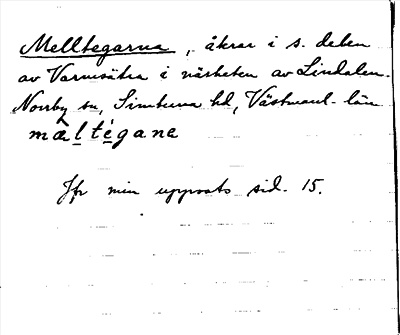 Melltegarna, åkrar i s. delen
av Varmsätra i närheten av Lindalen.
Norrby sn, Simtuna hd, Västmanl. län
mæ̂ltégane
Jfr min uppsats sid. 15.